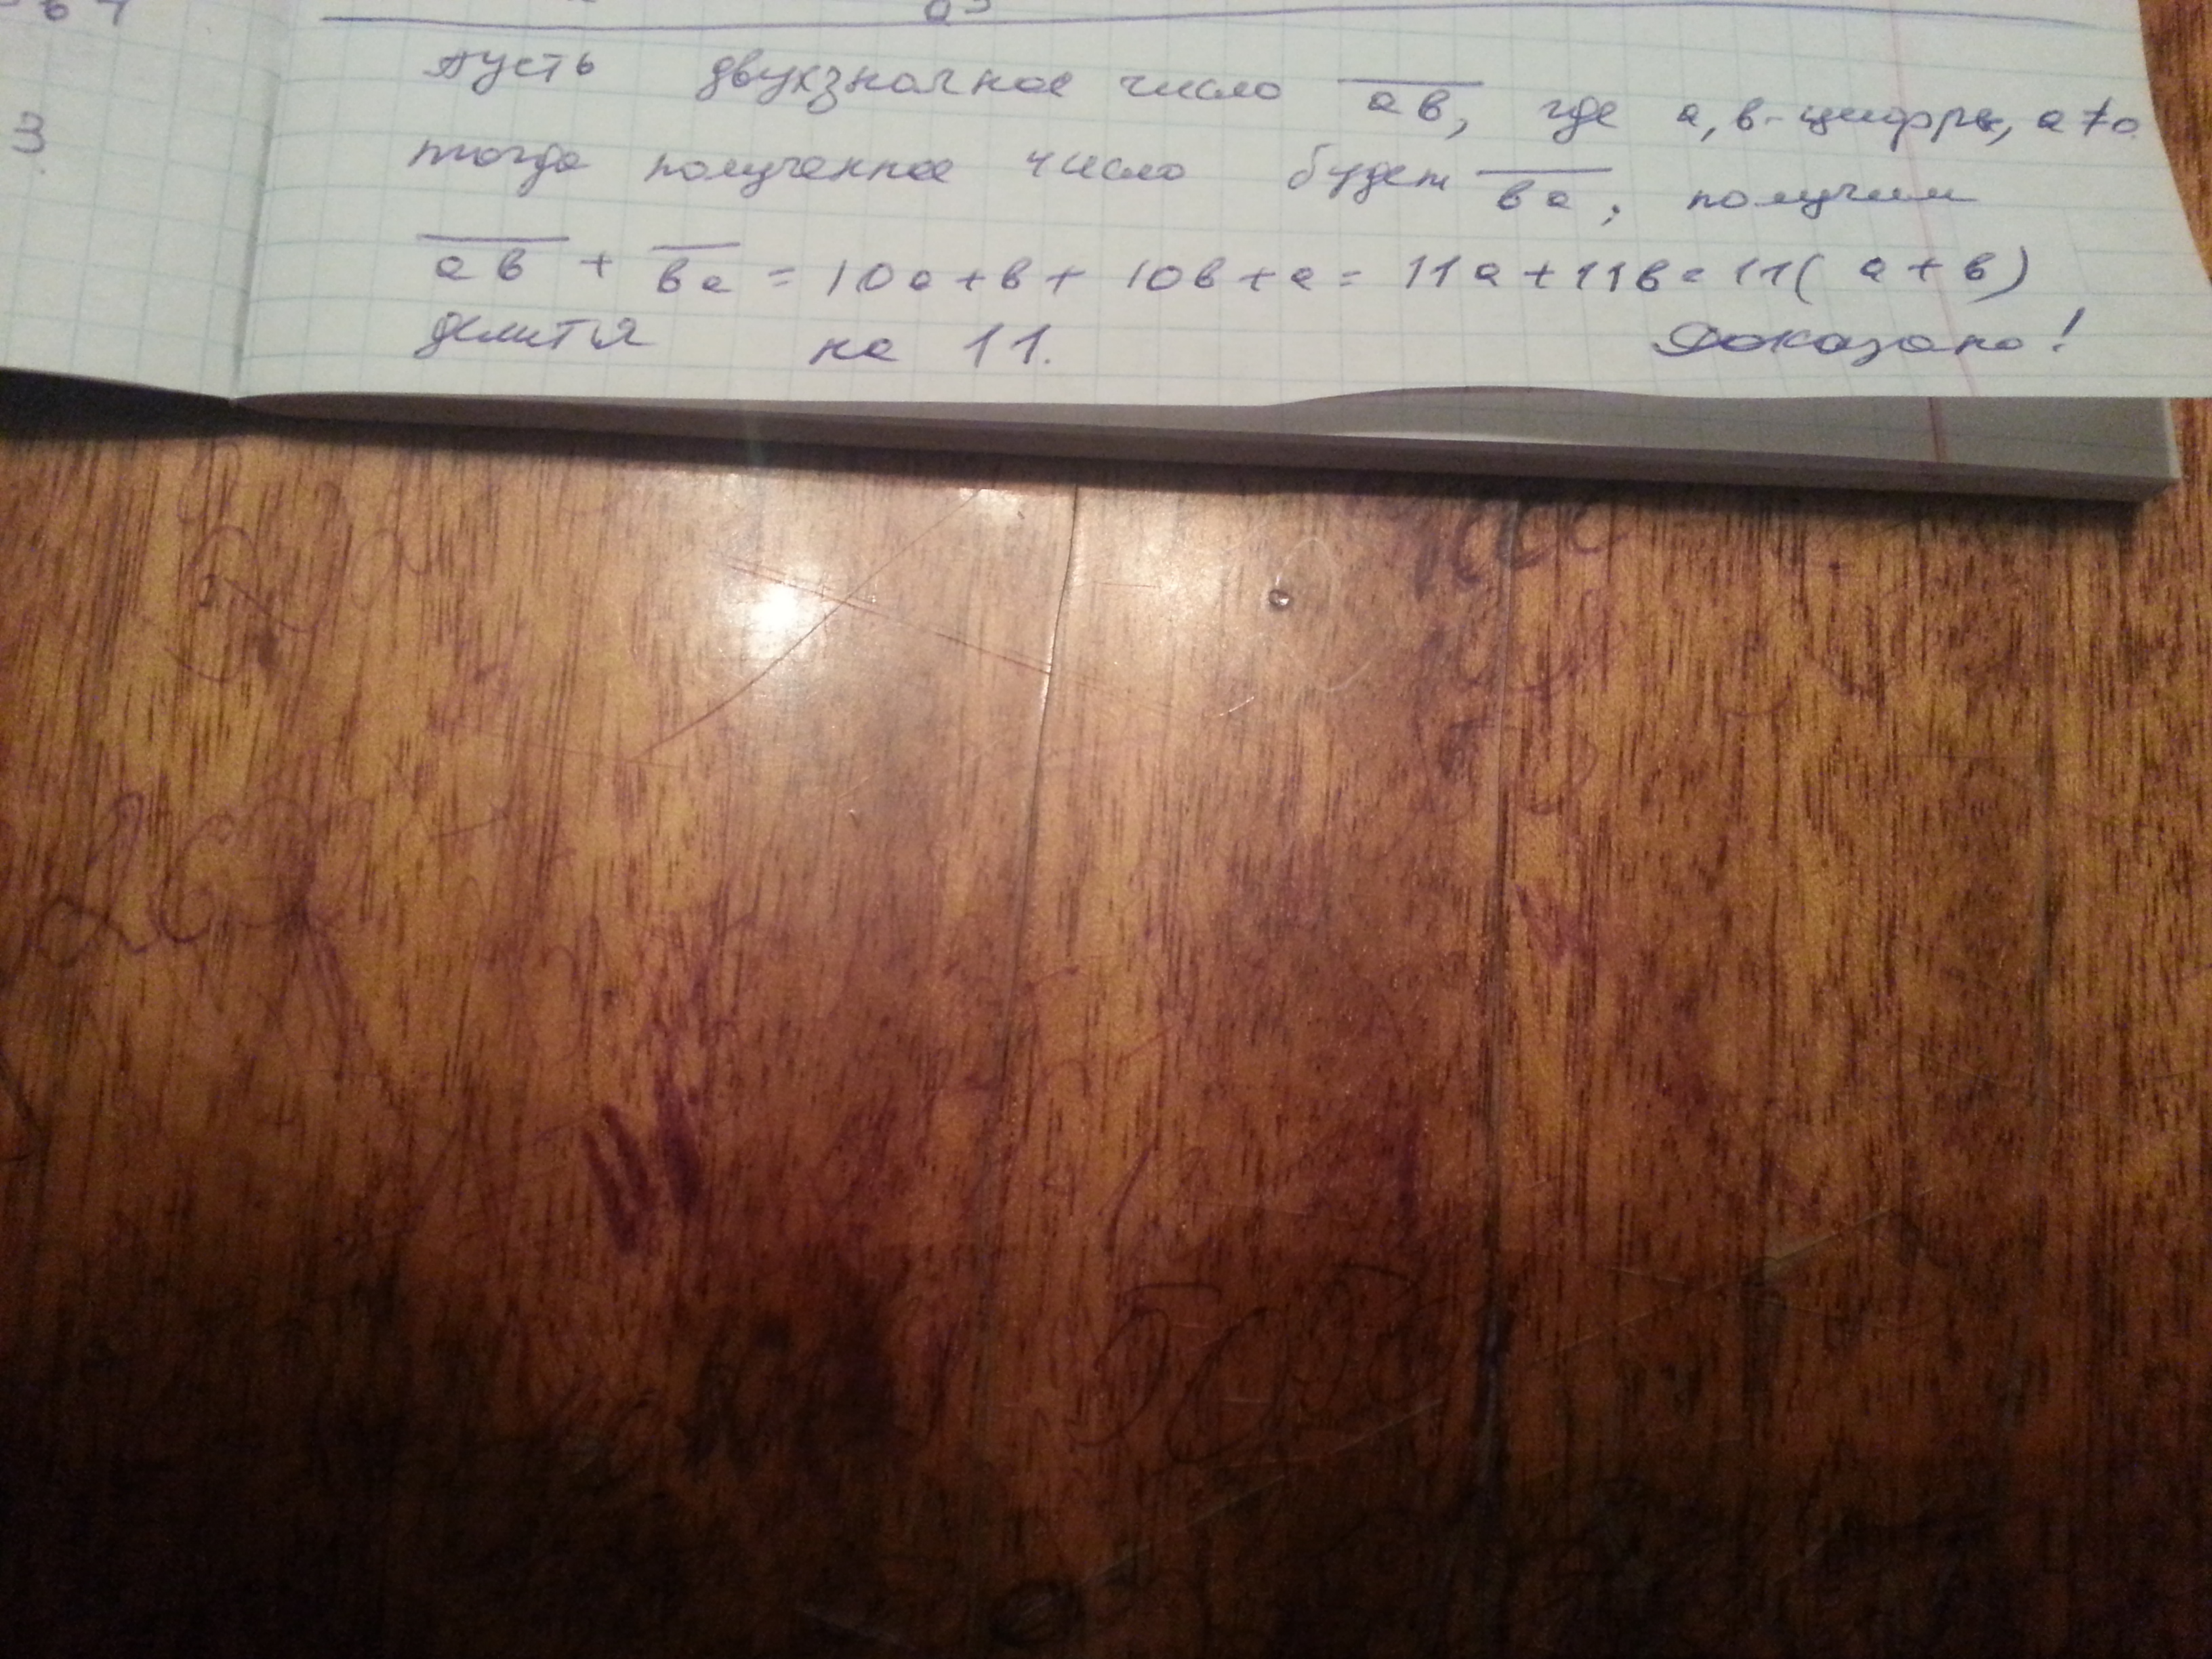 3.
Пусть двухзначное число ав, где а, в - цифры, а≠0.
тогда полученное число будет ва, получим
ав + ва = 10а+в+ 10в+а = 11а+11в = 11( а+в)
делится на 11. Доказано!